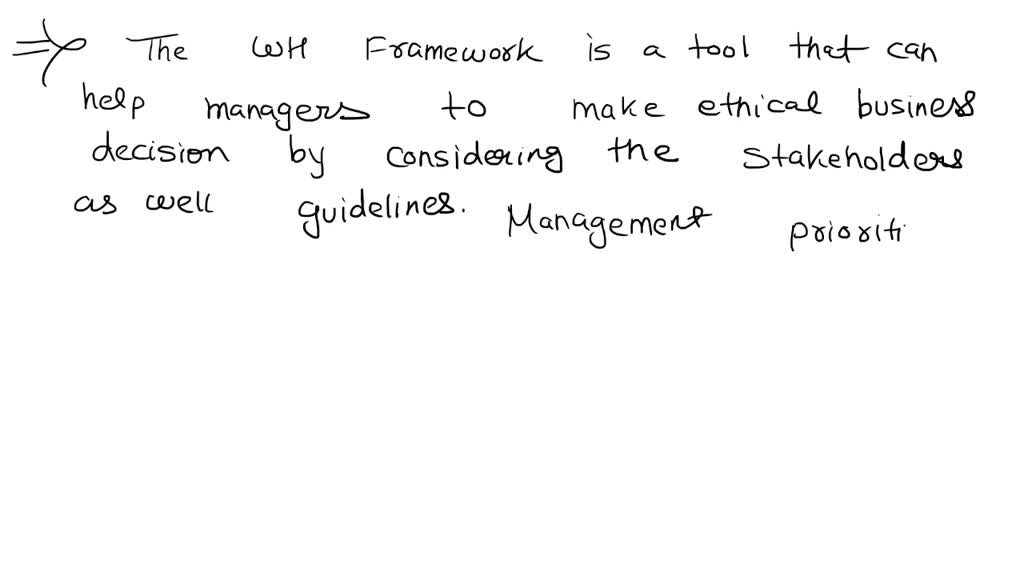 The WH Framework is a tool that can
help managers to make ethical business
decision by considering the stakeholders
as well guidelines. Management prioriti